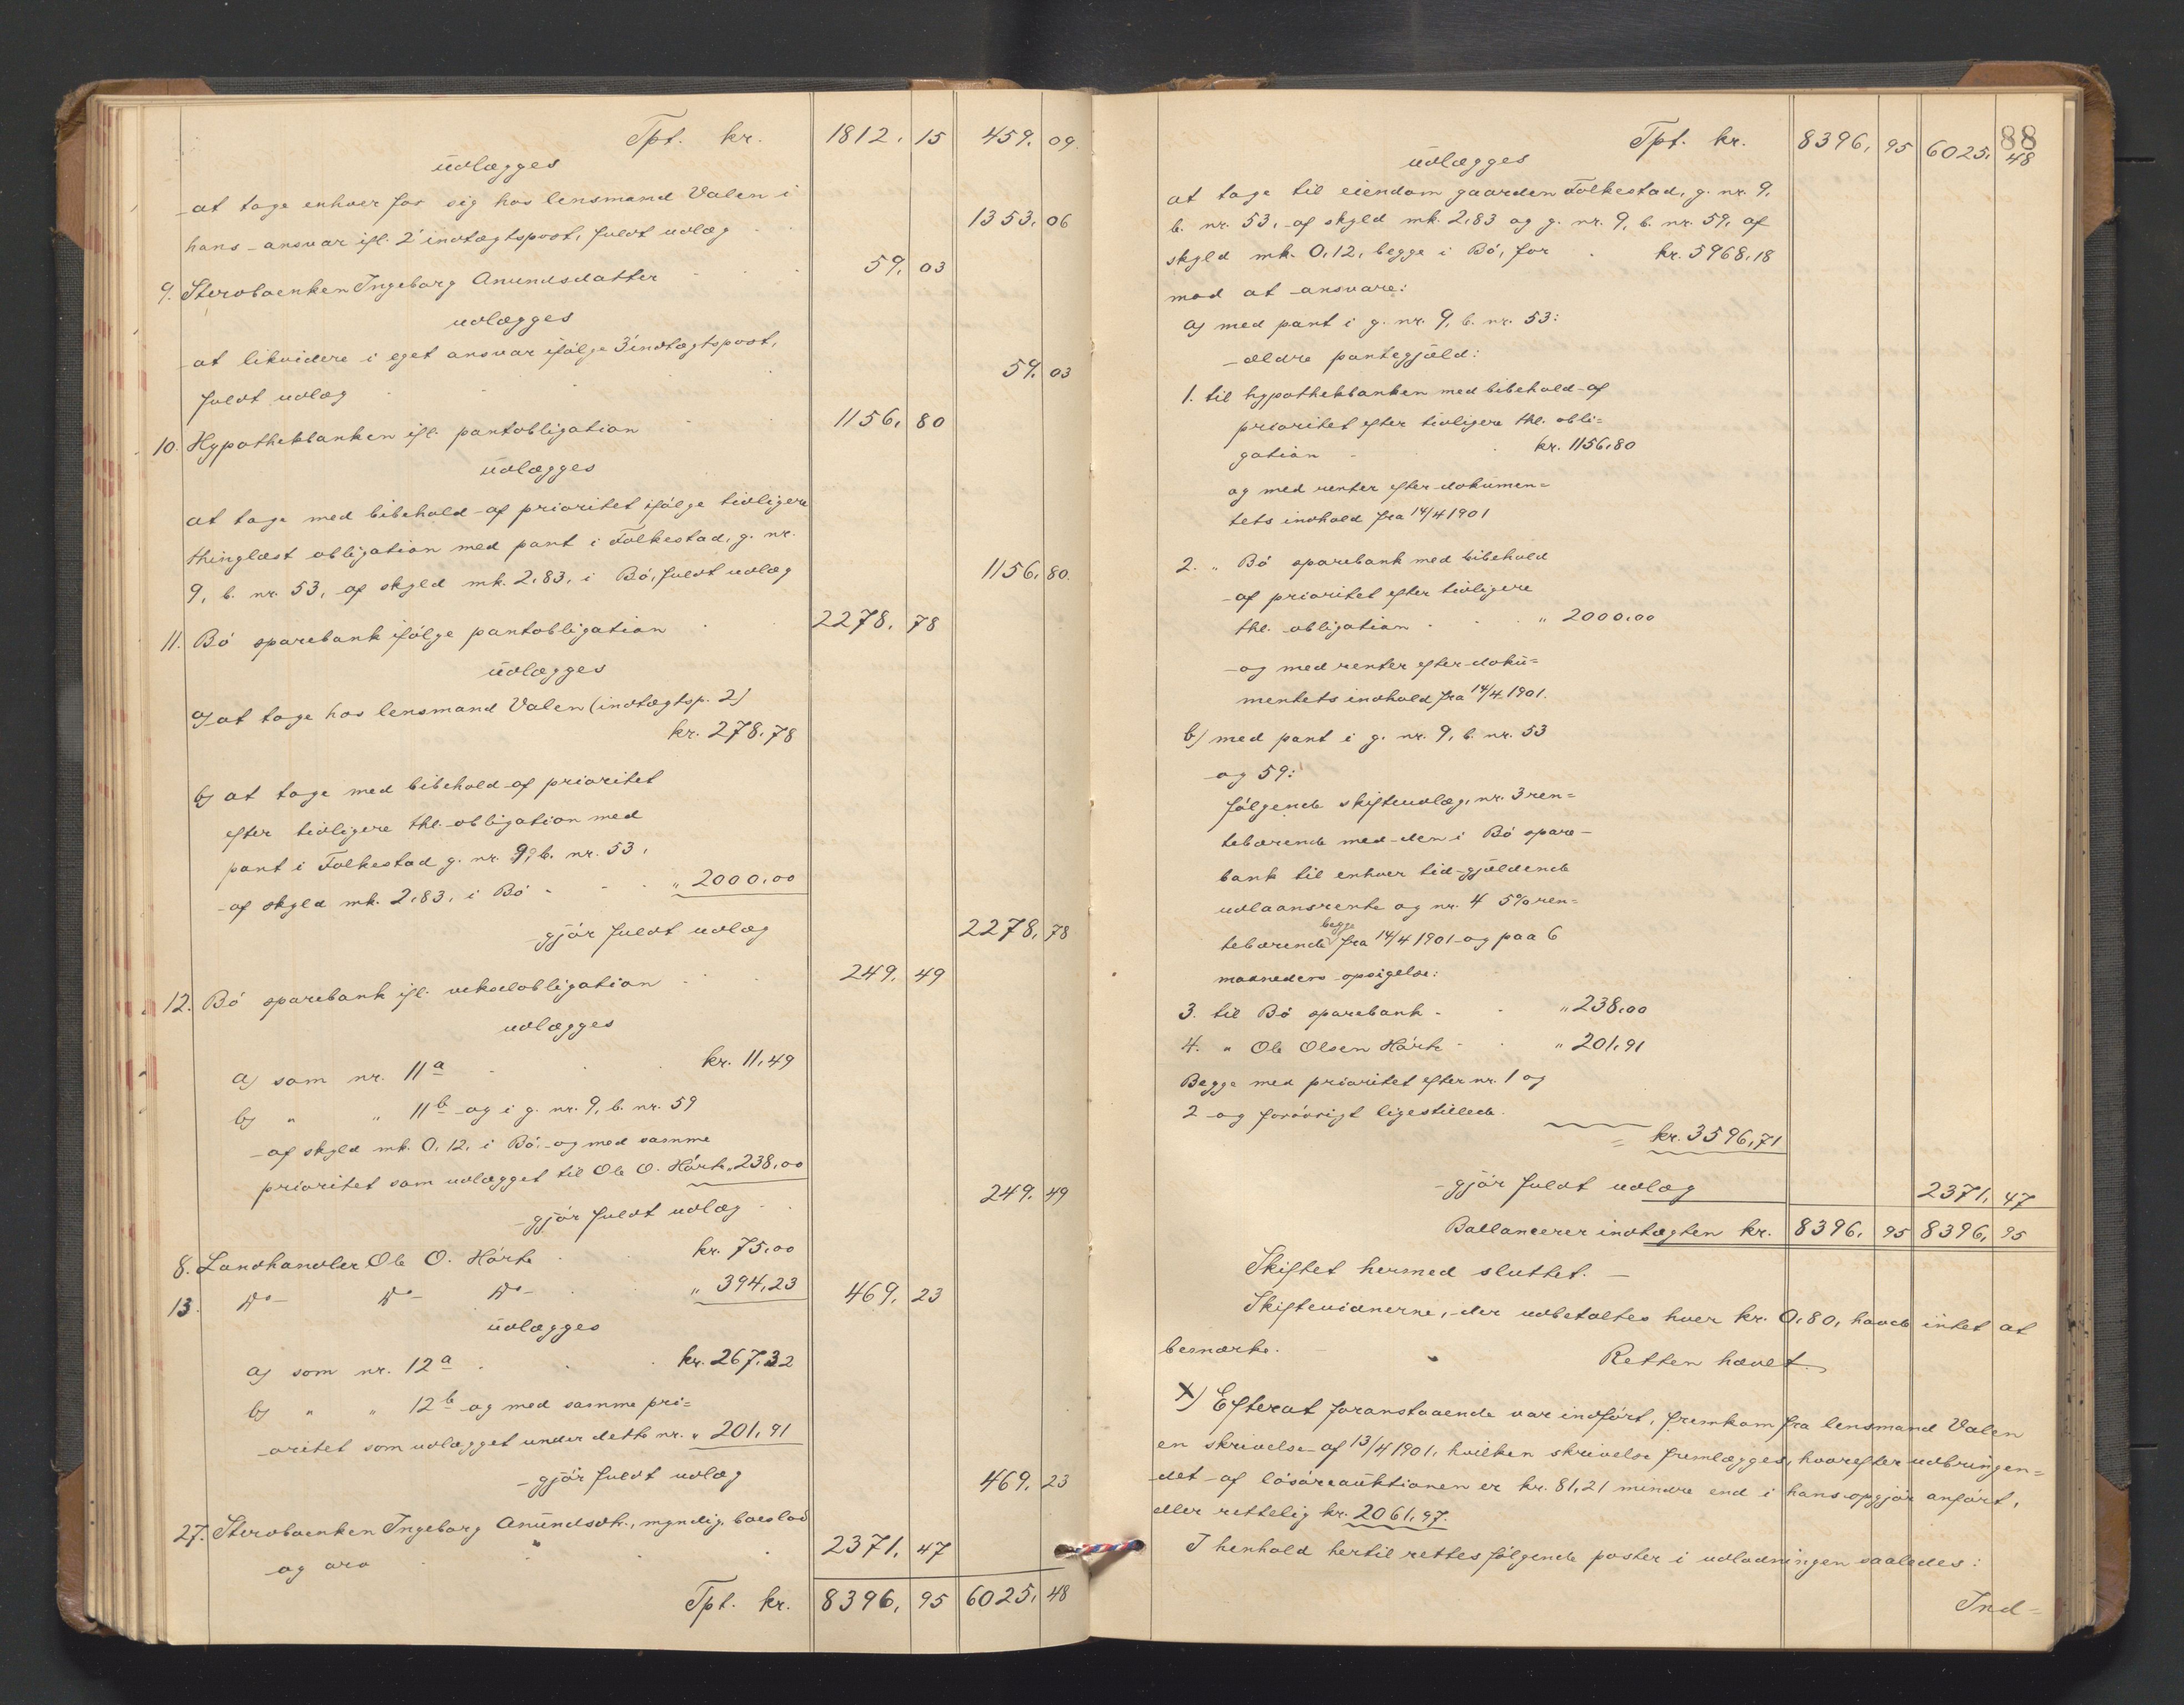 Tpt. kr. 1812. 15 459. 09.
udlægges
at tage enhver for sig hos lensmand Valen i
hans ansvar ifl. 2' indtægtspost, fuldt udlæg 1353. 06
9. Stervboenken Ingeborg Anundsdatter 59. 03
udlægges
at likvidere i eget ansvar ifølge 3' indtægtspost,
fuldt udlæg 59. 03
10. Hypothekbanken ifl. pantobligation 1156. 80
udlægges
at tage med bibehold af prioritet ifølge tidligere
thinglæst obligation med pant i Folkestad, g. nr.
9, b. nr. 53, af skyld mk. 2.83, i Bø, fuldt udlæg 1156. 80.
11. Bø sparebank ifølge pantobligation 2278. 78
udlægges
a) at tage hos lensmand Valen (indtægtsp. 2)
kr. 278.78
b) at tage med bibehold af prioritet
efter tidligere thl. obligation med
pant i Folkestad g. nr. 9, b. nr. 53,
af skyld mk. 2.83, i Bø " 2000.00
gjør fuldt udlæg 2278. 78
12. Bø sparebank ifl. vekselobligation 249. 49
udlægges
a) som nr. 11a kr. 11.49
b) " " 11b og i g. nr. 9, b. nr. 59
af skyld mk. 0.12, i Bø, og med samme
prioritet som udlægget til Ole O. Hørte " 238.00
gjør fuldt udlæg 249. 49
8. Landhandler Ole O. Hørte kr. 75.00
13. do do do " 394.23 469. 23
udlægges
a) som nr. 12a kr. 267.32
b) " " 12b og med samme pri=
oritet som udlægget under dette nr. " 201.91
gjør fuldt udlæg 469. 23
27. Stervboenken Ingeborg Anundsdtr., myndig, boeslod
og arv 2371. 47
Tpt. kr. 8396. 95 6025. 48
88
Tpt. kr. 8396. 95 6025. 48
udlægges
at tage til eiendom gaarden Folkestad, g. nr. 9,
b. nr. 53, af skyld mk. 2.83 og g. nr. 9, b. nr. 59, af
skyld mk. 0.12, begge i Bø, for kr. 5968.18
mod at ansvare:
a) med pant i g. nr. 9, b. nr. 53:
ældre pantegjæld:
1. til hypothekbanken med bibehold af
prioritet efter tidligere thl. obli=
gation kr. 1156.80
og med renter efter dokumen=
tets indhold fra 14/4 1901
2. " Bø sparebank med bibehold
af prioritet efter tidligere
thl. obligation " 2000.00
og med renter efter doku=
mentets indhold fra 14/4 1901.
b) med pant i g. nr. 9, b. nr. 53
og 59:
følgende skifteudlæg, nr. 3 ren=
tebærende med den i Bø spare=
bank til enhver tid gjældende
udlaansrente og nr. 4 5% ren=
begge
tebærende fra 14/4 1901 og paa 6
maaneders opsigelse:
3. til Bø sparebank " 238.00
4. " Ole Olsen Hørte " 201.91
Begge med prioritet efter nr. 1 og
2 og forøvrigt ligestillede.
= kr. 3596.71
gjør fuldt udlæg 2371. 47
Ballancerer indtægten kr. 8396. 95 8396. 95
Skiftet hermed sluttet.
Skiftevidnerne, der udbetaltes hver kr. 0.80, havde intet at
bemærke.
Retten hævet.
x) Efterat foranstaaende var indført, fremkom fra lensmand Valen
en skrivelse af 13/4 1901, hvilken skrivelse fremlægges, hvorefter udbringen=
det af løsøreauktionen er kr. 81.21 mindre end i hans opgjør anført,
eller rettelig kr. 2061.97.
I henhold hertil rettes følgende poster i udlodningen saaledes:
Ind=